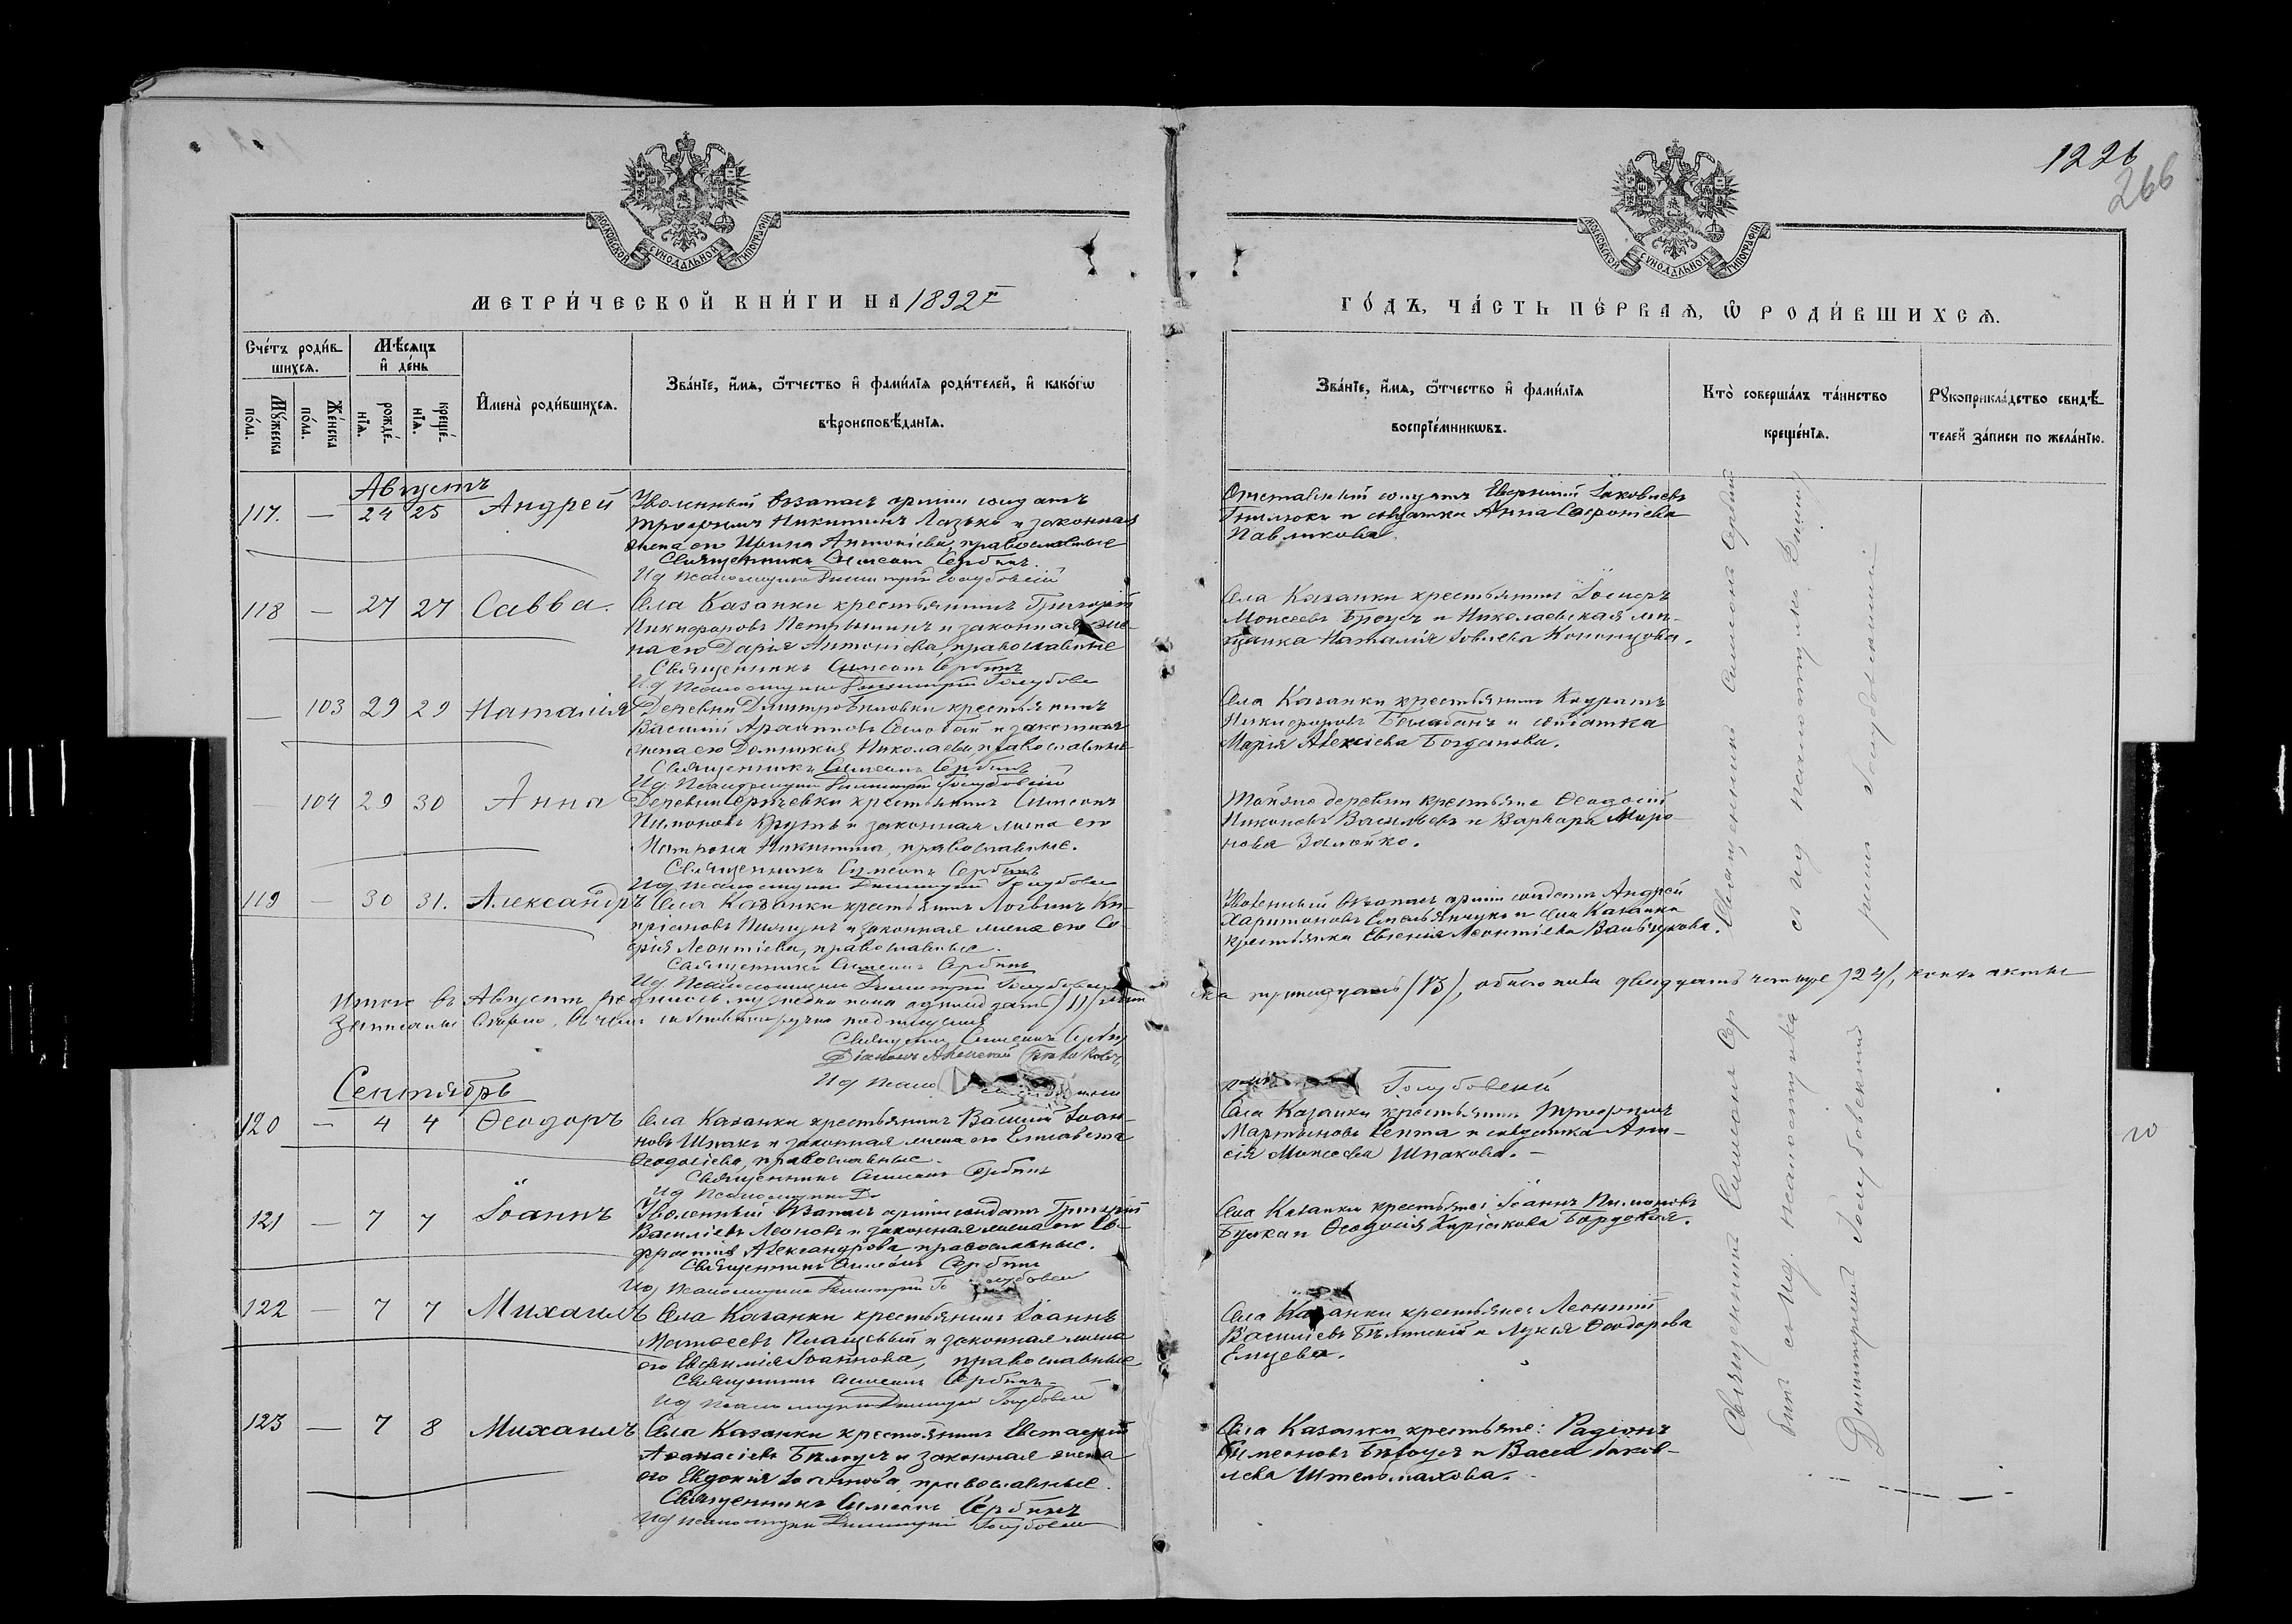 1226
266
МОСКОВСКОЙ СѴНОДАЛЬНОЙ ТИПОГРАФІИ
МОСКОВСКОЙ СѴНОДАЛЬНОЙ ТИПОГРАФІИ
МЕТРИ́ЧЕСКОЙ КНИ́ГИ НА 1892 г
ГО́ДЪ, ЧА́СТЬ ПЕ́РВАѦ, Ѽ РОДИ́ВШИХСѦ.
Сче́тъ роди́в-
шихсѧ.
Мꙋ́жеска по́ла.
Же́нска по́ла.
Мѣ́сѧцъ
и҆ де́нь
рожде́-нїѧ.
креще́-нїѧ.
И҆мена̀ роди́вшихсѧ.
Зва́нїе, и҆́мѧ, ѻ҆́тчество и҆ фами́лїѧ роди́телей, и҆ како́гѡ
вѣроисповѣ́данїѧ.
Зва́нїе, и҆́мѧ, ѻ҆́тчество и҆ фами́лїѧ
воспрїе́мникѡвъ.
Кто̀ соверша́лъ та́инство
креще́нїѧ.
Рꙋкоприкла́дство свидѣ́-
телей за́писи по жела́нїю.
Августъ
117. — 24 25 Андрей
Уволенный въ запасъ арміи солдатъ
Трофимъ Никитинъ Лазько и законная
жена его Ирина Антоніева, православные
Священникъ Симеонъ Сербинъ.
Ид псаломщика Димитрій Голубовскій
Отставный солдатъ Евфимій Іаковлевъ
и солдатка Анна Софроніева
Павликова.
118 — 27 27 Савва.
Села Казанки крестьянинъ Григорій
Никифоровъ Петрышинъ и законная же-
на его Дарія Антоніева, православные
Священникъ Симеонъ Сербинъ
Ид псаломщика Димитрій Голубовс
Села Казанки крестьянинъ Іосифъ
Моисеевъ Бреусъ и Николаевская мѣ-
щанка Наталія Іовлева Кононцова.
— 103 29 29 Наталія
Деревни Дмитро-Бѣловки крестьянинъ
Василій и законная
жена его Домникія Николаева, православные
Священникъ Симеонъ Сербинъ
Ид. Псаломщика Димитрій Голубовскій
Села Казанки крестьянинъ Кодратъ
Никифоровъ Балабанъ и солдатка
Марія Алексіева Богданова.
— 104 29 30 Анна
Деревни крестьянинъ Симеонъ
Пимоновъ Крутъ и законная жена его
Матрона Никитина, православные.
Священникъ Симеонъ Сербинъ
Ид псаломщика Димитрій Голубовс
Тойже деревни крестьяне Ѳеодосій
Никоновъ Васильевъ и Варвара Миро-
нова Залойко.
119 — 30 31. Александръ
Села Казанки крестьянинъ Логвинъ Ки-
пріановъ и законная жена его Со-
фія Леонтіева, православные.
Священникъ Симеонъ Сербинъ
Ид. Псаломщика Димитрій Голубовс
Уволенный въ запасъ арміи солдатъ Андрей
Харитоновъ Емельянчукъ и села Казанки
крестьянка Евгенія Леонтіева
Итого въ Августѣ родилось мужеска пола одинадцать /11/, жен
ска тринадцать /13/, обоего пола двадцать четыре /24/,
записаны вѣрно, въ чемъ и подписуемся
Священникъ Симеонъ Сербинъ
Діаконъ Алексій
Ид псало
Голубовскій
Сентябрь
120 — 4 4 Ѳеодоръ
Села Казанки крестьянинъ Василій Іоан-
новъ Шпакъ и законная жена его Елисавета
Ѳеодосіева, православные.
Священникъ Симеонъ Сербинъ
Ид псаломщика Д
Села Казанки крестьянинъ Трофимъ
Мартыновъ Кепта и солдатка Ани-
сія Моисеева Шпакова. —
121 — 7 7 Іоаннъ
Уволенный въ запасъ арміи солдатъ Григорій
Василіевъ Леоновъ и законная жена его Ев-
фросинія Александрова православные.
Священникъ Симеонъ Сербинъ
Ид псаломщика Димитрій Голубовск
Села Казанки крестьяне: Іоаннъ Пимоновъ
и Ѳеодосія Киріакова
122 — 7 7 Михаилъ
Села Казанки крестьянинъ Іоаннъ
Матѳеевъ и законная жена
его Евфимія Іоаннова, православные
Священникъ Симеонъ Сербинъ.
Ид псаломщика Димитрій Голубовск
Села Казанки крестьяне: Леонтій
Василіевъ и Лукія Ѳеодорова
Емцева.
123 — 7 8 Михаилъ
Села Казанки крестьянинъ Евстафій
Аѳанасіевъ Бѣлоусъ и законная жена
его Евдокія Іоаннова, православные.
Священникъ Симеонъ Сербинъ
Ид псаломщика Димитрій Голубовск
Села Казанки крестьяне: Радіонъ
Симеоновъ Бѣлоусъ и Васса Іаков-
лева Штельмахова.
Священникъ Симеонъ Сербинъ
съ ид псаломщика Дими
тріемъ Голубовскимъ
Священникъ Симеонъ Сер
бинъ съ ид. псаломщика
Димитріемъ Голубовскимъ